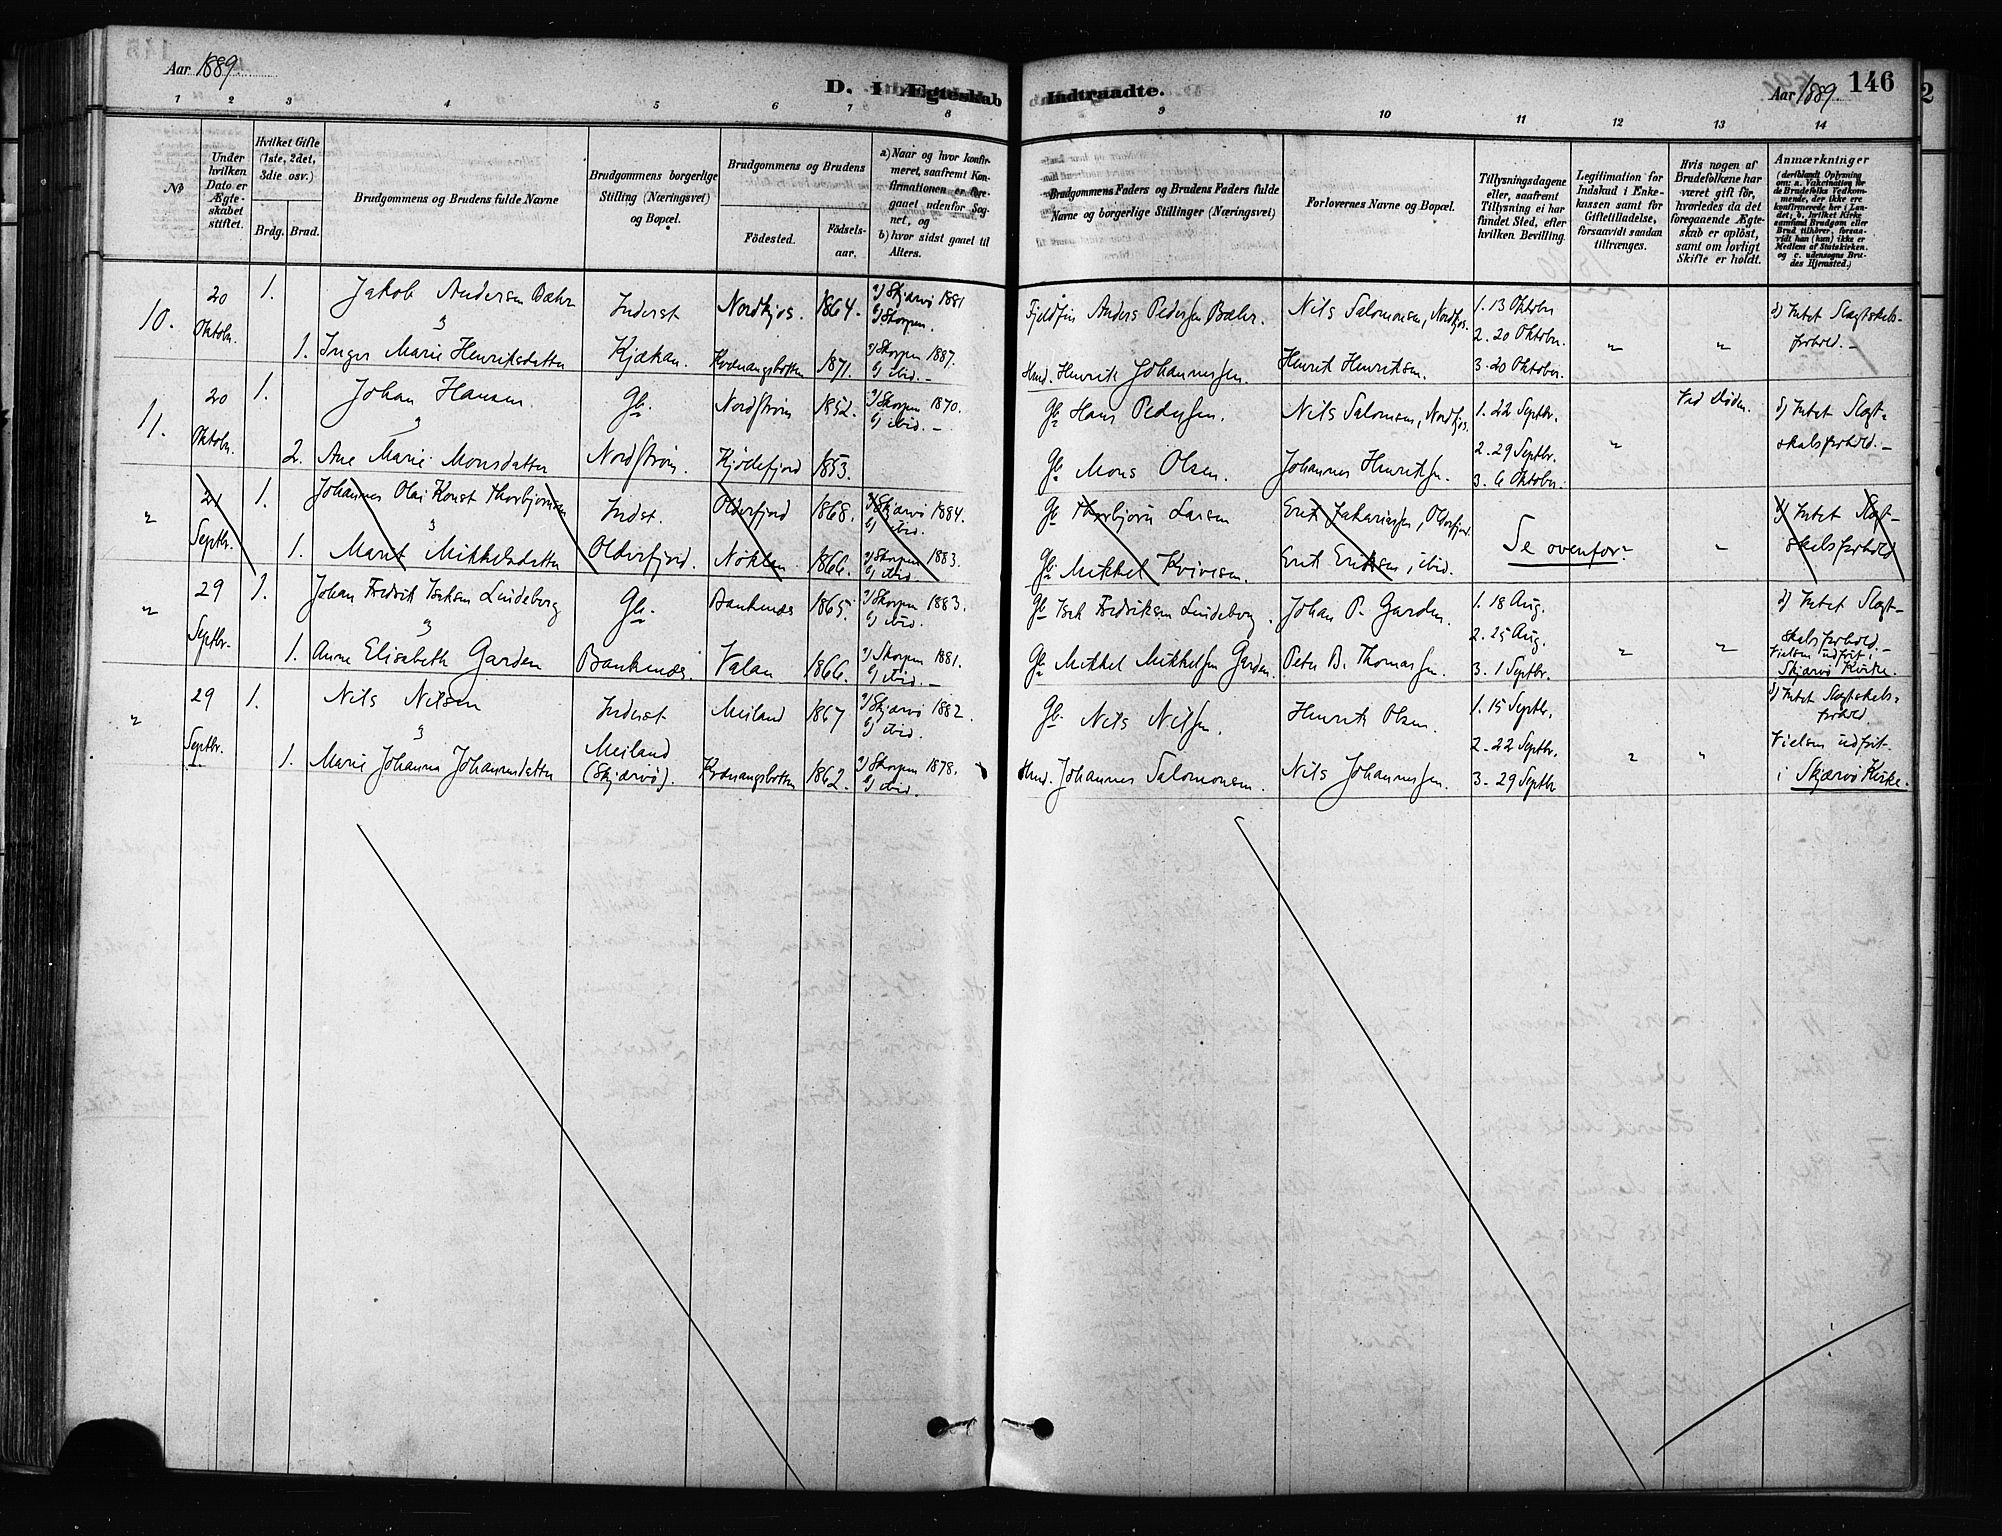 Aar 1889.
D. I. Ægteskab Indtraadte.
Aar 1889.
146
1 2 3 4 5 6 7 8 9 10 11 12 13 14
No
Under hvilken Dato er Ægteskabet stiftet.
Hvilket Gifte (1ste, 2det, 3die osv.)
Brdg. Brud.
Brudgommens og Brudens fulde Navne
Brudgommens borgerlige Stilling (Næringsvei) og Bopæl.
Brudgommens og Brudens
Födested.
Födselsaar.
a) Naar og hvor konfirmeret, saafremt Konfirmationen er foregaaet udenfor Sognet, og
b) hvor sidst gaaet til Alters.
Brudgommens Faders og Brudens Faders fulde Navne og borgerlige Stillinger (Næringsvei)
Forlovernes Navne og Bopæl.
Tillysningsdagene eller, saafremt Tillysning ei har fundet Sted, efter hvilken Bevilling.
Legitimation for Indskud i Enkekassen samt for Giftetilladelse, forsaavidt saadan tiltrænges.
Hvis nogen af Brudefolkene har været gift för, hvorledes da det foregaaende Ægteskab er oplöst, samt om lovligt Skifte er holdt.
Anmærkninger (deriblandt Oplysning om: a. Vakcination for de Brudefolks Vedkommende, der ikke ere konfirmerede her i Landet; b. hvilket Kirkesamfund Brudgom eller Brud tilhörer, forsaavidt han (hun) ikke er Medlem af Statskirken, og c. udensogns Brudes Hjemsted.)
10. 20 Oktober. 1. Jakob Andersen Bæhr Inderst Nordkjos. 1864. a) Skjærvö 1881 b) Skorpen. Fjeldfin Anders Pedersen Bæhr. Nils Salomonsen, Nordkjos. 1. 13 Oktober 2. 20 Oktober. " " d) Intet Slægtskabsforhold. –
1. Inger Marie Henriksdatter Kjækan. Kvænangsbotten 1871. a) Skorpen 1887. b) ibid. – Hmd. Henrik Johannessen. Henrik Henriksen. 3. 20 Oktober.
11. 20 Oktober. 1. Johan Hansen. Gb. Nordström 1852. a) Skorpen 1870. b) ibid. – Gb. Hans Pedersen. Nils Salomonsen, Nordkjos. 1. 22 Septbr. " Ved Döden. d) Intet Slægtskabsforhold. –
2. Ane Marie Monsdatter Nordström. Kjödefjord 1853. Gb. Mons Olsen. Johannes Henriksen. 2. 29 Septbr. 3. 6 Oktober.
" 21 Septbr. 1. Johannes Olai Konst Thorbjornsen Indst. Olderfjord 1868. a) Skjærvö 1884. b) ibid. Gb. Thorbjörn Larsen Erik Zakariassen, Olderfjord. Se ovenfor " d) Intet Slægtskabsforhold
1. Marit Mikkelsdatter Olderfjord. Nöklan. 1866. a) Skorpen 1883. b) ibid. Gb. Mikkel Kvivesen. Erik Eriksen, ibid.
" 29 Septbr. 1. Johan Fredrik Isaksen Lindeborg Gb. Baukenæs 1865. a) Skorpen 1883. b) ibid. Gb. Isak Fredriksen Lindeborg. Johan P. Garden. 1. 18 Aug. 2. 25 Aug. " " d) Intet Slægtskabsforhold. –
1. Anne Elisabeth Garden Baukenæs. Valan 1866. a) Skorpen 1881. b) ibid. – Gb. Mikkel Mikkelsen Garden. Peter B. Thomassen. 3. 1 Septbr. Vielsen udfört i Skjærvö Kirke.
" 29 Septbr. 1. Nils Nilsen Inderst Meiland 1867 a) Skjærvö 1882. b) ibid. Gb. Nils Nilsen. Henrik Olsen 1. 15 Septbr. 2. 22 Septbr. " " d) Intet Slægtskabsforhold.
1. Marie Johanna Johannesdatter Meiland (Skjærvö). Kvænangsbotten 1862. a) Skorpen 1878. b) ibid. Hmd. Johannes Salomonsen. Nils Johannessen. 3. 29 Septbr Vielsen udfört i Skjærvö Kirke.